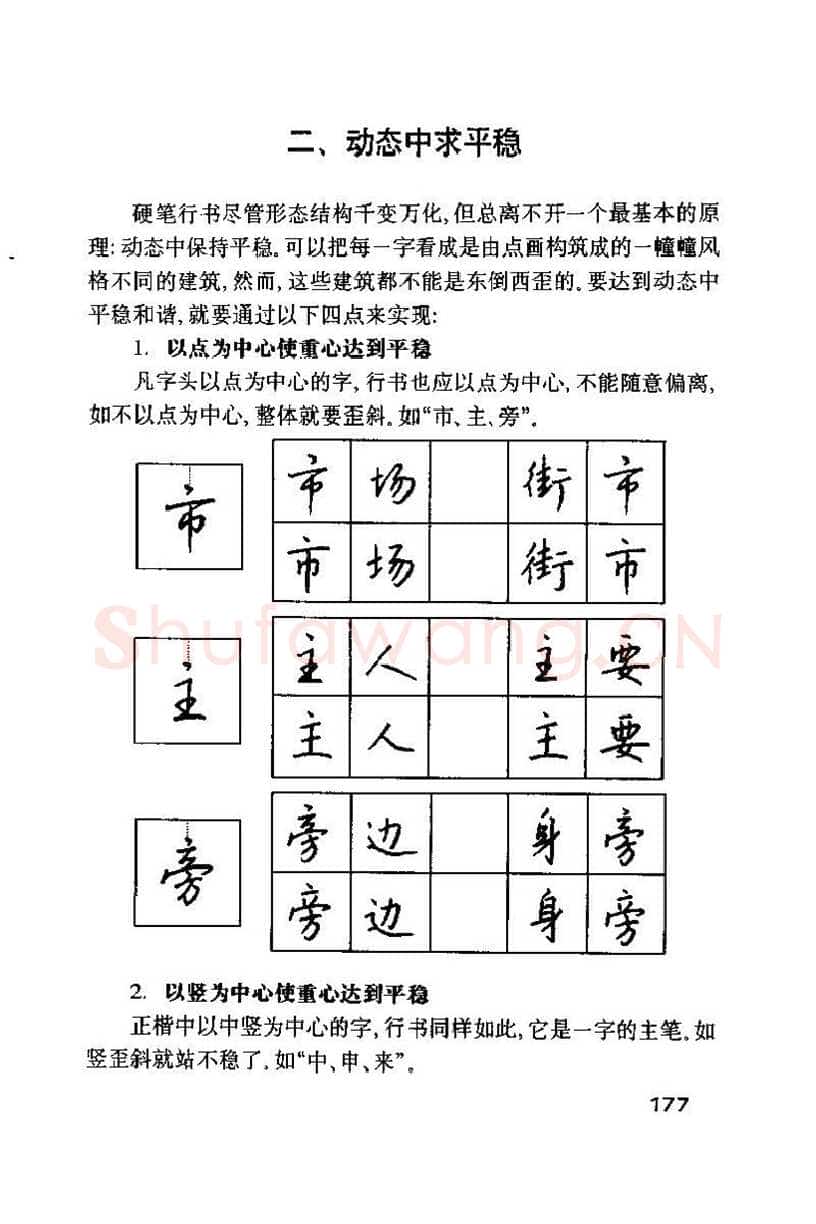 二、动态中求平稳
硬笔行书尽管形态结构千变万化,但总离不开一个最基本的原
理:动态中保持平稳。可以把每一字看成是由点画构筑成的一幢幢风
格不同的建筑,然而,这些建筑都不能是东倒西歪的。要达到动态中
平稳和谐,就要通过以下四点来实现:
1. 以点为中心使重心达到平稳
凡字头以点为中心的字,行书也应以点为中心,不能随意偏离,
如不以点为中心,整体就要歪斜。如“市、主、旁”。
市
市场 街市
市场 街市
Shufawang.CN
主
主人 主要
主人 主要
旁
旁边 身旁
旁边 身旁
2. 以竖为中心使重心达到平稳
正楷中以中竖为中心的字,行书同样如此,它是一字的主笔。如
竖歪斜就站不稳了。如“中、申、来”。
177